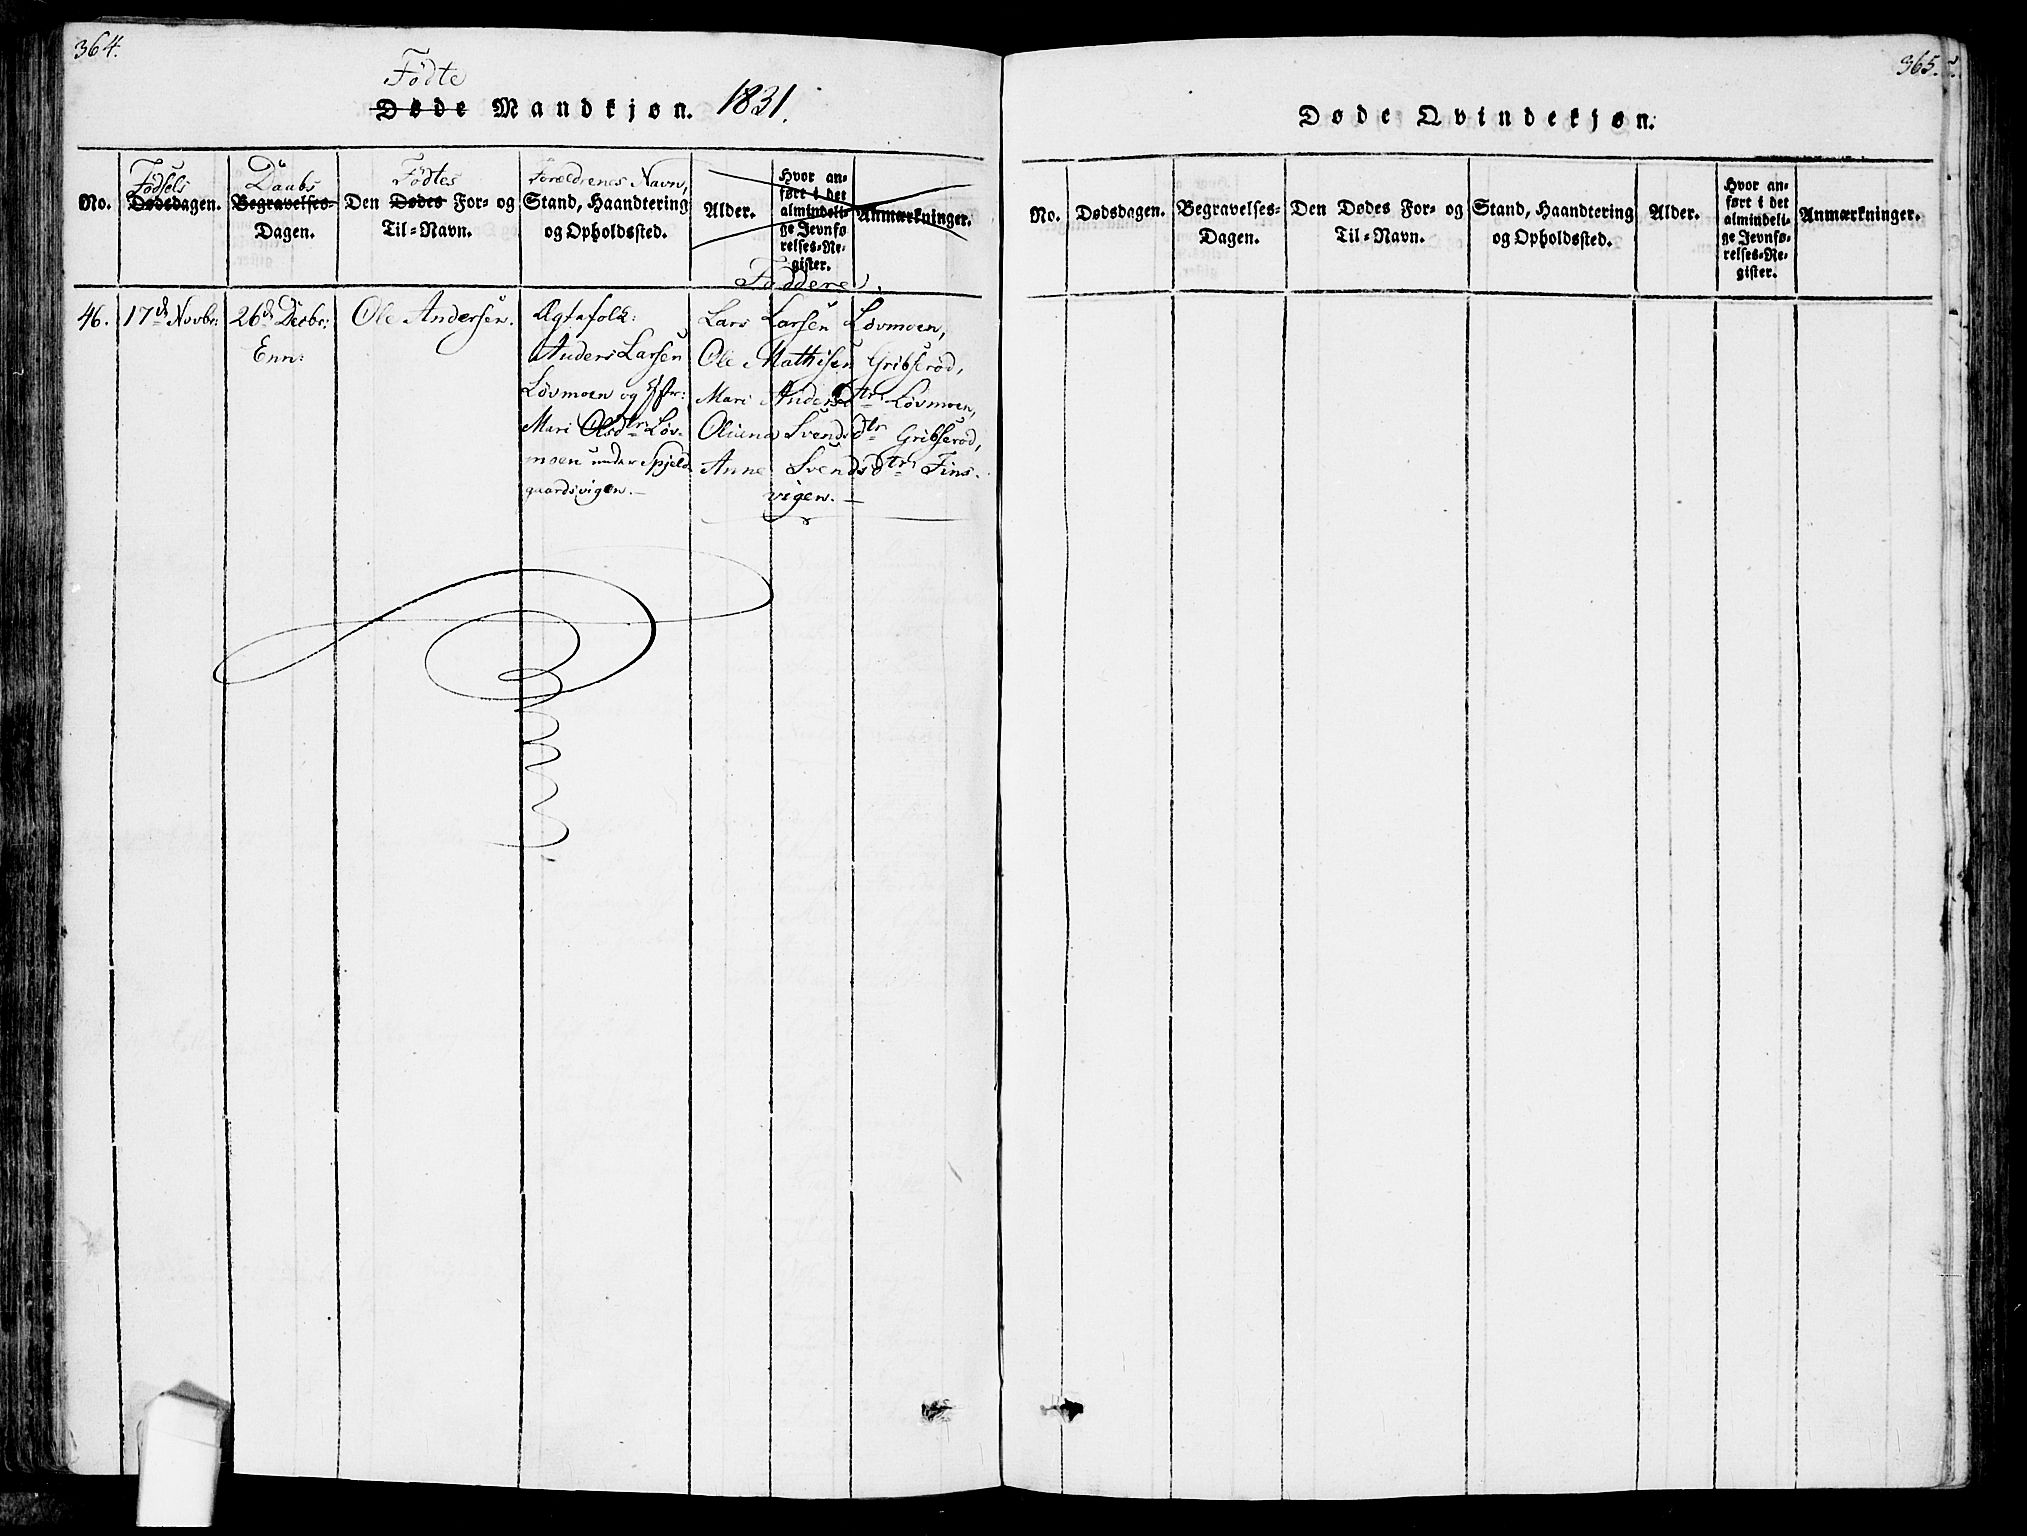 364.
Fødte
Døde Mandkjøn. 1831.
No.
Fødsels
Dødsdagen.
Daabs
Begravelses-
Dagen.
Fødtes
Den Dødes For- og
Til-Navn.
Forældrenes Navn,
Stand, Haandtering
og Opholdssted.
Alder.
Hvor an-
ført i det
almindeli-
ge Jevnfø-
relses-Re-
gister.
Anmærkninger.
Faddere.
46.
17d Novbr:
26d Decbr:
Enn:
Ole Andersen.
Ægtefolk:
Anders Larsen
Løvmoen og Hstr:
Mari Olsdtr Løv-
moen under Spjeld
gaardsvigen.—
Lars Larsen Løvmoen,
Ole Mathisen Gribserød,
Mari Andersdtr Løvmoen,
Oliana Svendsdtr Gribserød,
Anne Svendsdtr Fins-
vigen.—
365.
Døde Qvindekjøn.
No.
Dødsdagen.
Begravelses-
Dagen.
Den Dødes For- og
Til-Navn.
Stand, Haandtering
og Opholdssted.
Alder.
Hvor an-
ført i det
almindeli-
ge Jevnfø-
relses-Re-
gister.
Anmærkninger.